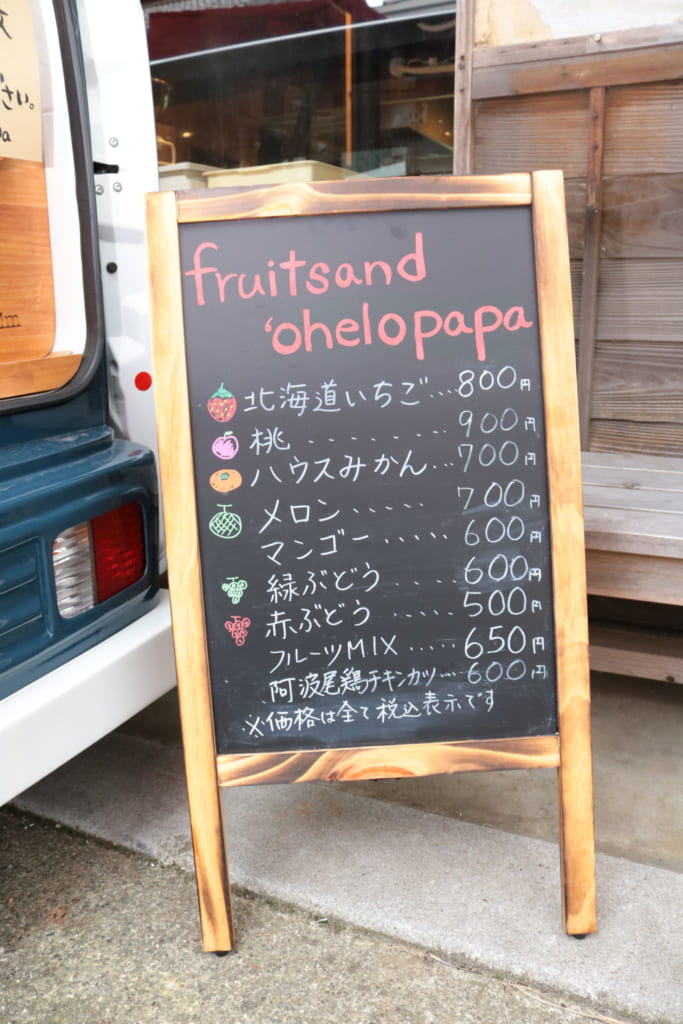 さい。
fruitsand
'ohelopapa
北海道いちご…800円
桃........900円
ハウスみかん…700円
メロン.....700円
マンゴー.....600円
緑ぶどう.....600円
赤ぶどう.....500円
フルーツMIX.....650円
阿波尾鶏チキンカツ…600円
※価格は全て税込表示です